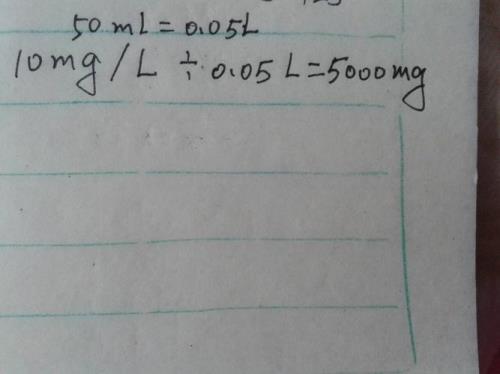 50 mL = 0.05L
10mg/L ÷ 0.05L=5000mg